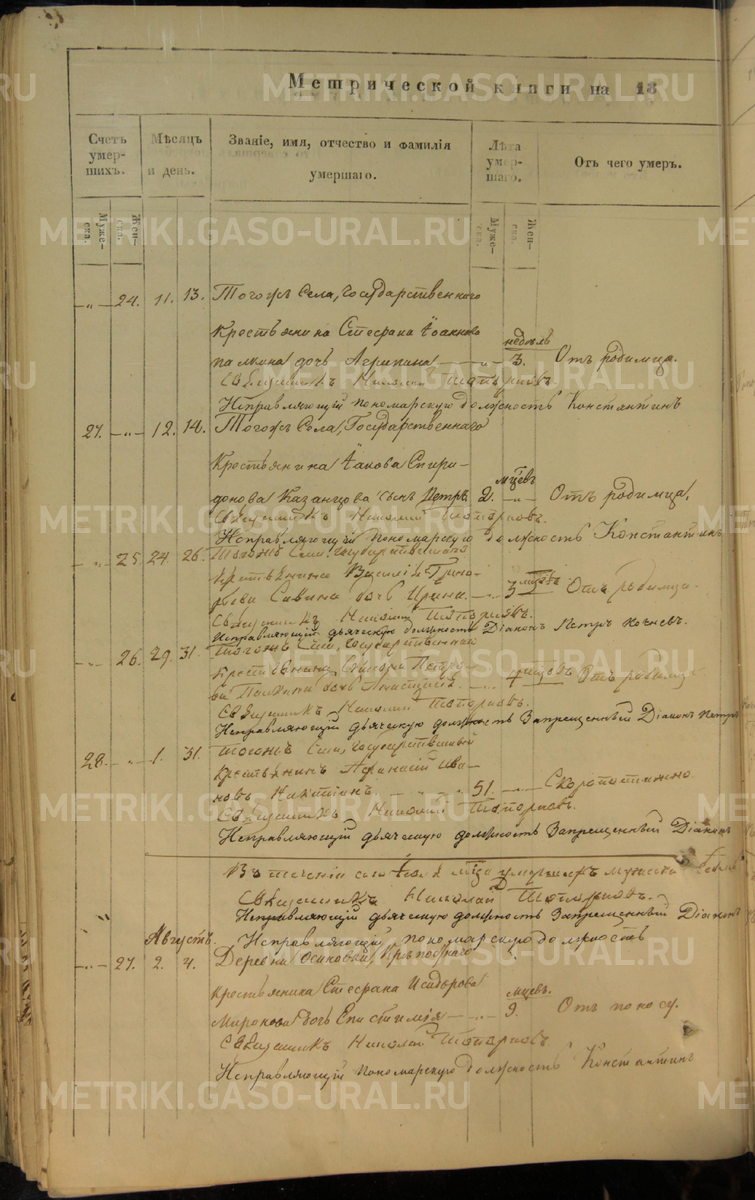 Метрической книги на 18
Счетъ умер- шихъ.
Мѣсяцъ и день.
Званіе, имя, отчество и фамилія умершаго.
Лѣта умер- шаго.
Отъ чего умеръ.
Муже- ска.
Жен- ска.
Муже- ска.
Жен- ска.
-„- 24. 11. 13. Тогожъ Села, Государственнаго
Крестьянина Стефана Іоаннова
дочь Агрипина — „ — недѣль 3. Отъ родимца.
Священникъ Николай Топорковъ.
Исправляющій пономарскую должность Константинъ
27. -„- 12. 14. Тогожъ Села, Государственнаго
Крестьянина Іакова Спири-
донова Казанцова сынъ Петръ мцевъ 2. -„- Отъ родимца.
Священникъ Николай Топорковъ.
Исправляющій пономарскую должность Константинъ
-„- 25. 24. 26. Тогожъ Села, Государственнаго
Крестьянина Василія Григо-
рьева Савина дочь Ирина. — „ — 3 Отъ родимца.
Священникъ Николай Топорковъ.
Исправляющій дьяческую должность Діаконъ Петръ
-„- 26. 29. 31. Тогожъ Села, Государственнаго
Крестьянина Петро-
ва дочь Анастасія. — „ — 4 мцевъ Отъ родимца
Священникъ Николай Топорковъ.
Исправляющій дьяческую должность Запрещенный Діаконъ Петръ
28. -„- 1. 31. Тогожъ Села, Государственный
Крестьянинъ Афанасій Ива-
новъ 51. — „ — Скоропостижно
Священникъ Николай Топорковъ.
Исправляющій дьяческую должность Запрещенный Діаконъ
Въ теченіи сего Іюля мца умершихъ мужеска
Священникъ Николай Топорковъ.
Исправляющій дьяческую должность Запрещенный Діаконъ
Августъ. Исправляющій пономарскую должность
-„- 27. 2. 4. Деревни Осиновки, Крѣпостнаго
Крестьянина Стефана Исидорова
Миронова дочь Епистимія — „ — мцевъ. 9. Отъ поносу.
Священникъ Николай Топорковъ
Исправляющій пономарскую должность Константинъ
METRIKI.GASO-URAL.RU